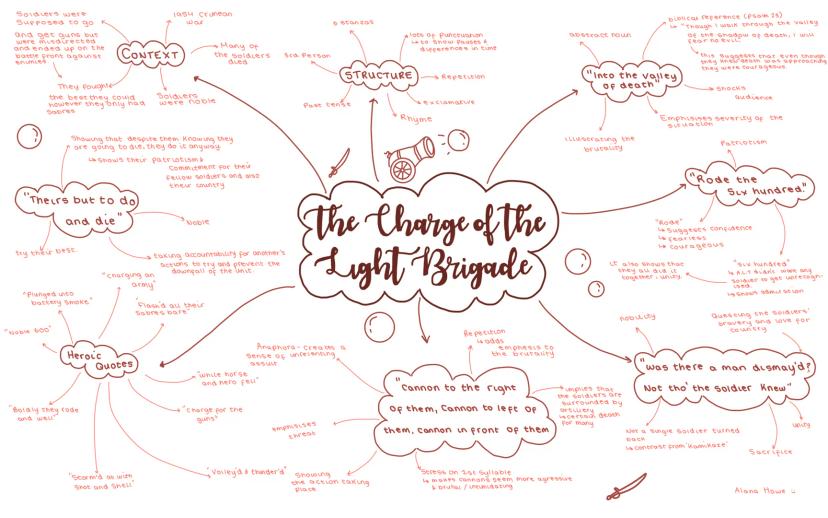 The Charge of the
Light Brigade
CONTEXT
Soldiers were
supposed to go
and get guns but
were misdirected
and ended up on the
battle front against
enemies
1854 Crimean
war
Many of
the soldiers
died
They fought
the best they could
however they only had
sabres
Soldiers
were noble
STRUCTURE
6 stanzas
lots of punctuation
↳ to show pauses &
differences in time
3rd Person
Repetition
Past tense
exclamative
Rhyme
"Into the valley
of death"
abstract noun
biblical reference (Psalm 23)
↳ "though I walk through the valley
of the shadow of death, I will
fear no evil"
this suggests that even though
they knew death was approaching
they were courageous
shocks
audience
Emphasises severity of the
situation
illustrating the
brutality
"Rode the
Six hundred."
Patriotism
"Rode"
↳ suggests confidence
↳ fearless
↳ courageous
"Six hundred"
soldier to get
↳ shows admiration
it also shows that
they all did it
together, unity
"was there a man dismay'd?
Not tho' the soldier knew"
nobility
Questing the soldiers'
bravery and love for
country
Not a single soldier turned
back
↳ contrast from 'kamikaze'
Sacrifice
Unity
"Cannon to the right
of them, Cannon to left of
them, Cannon in front of them
Anaphora- creates a
sense of unrelenting
Repetition
↳ adds
emphasis to
the brutality
implies that
the soldiers are
surrounded by
artillery
↳ certain death
for many
emphisises
threat
Showing
the action taking
place
Stress on 1st syllable
↳ makes cannons seem more agressive
& brutal / intimidating
Heroic
Quotes
"Charging an
army"
"Plunged into
battery smoke"
"Flash'd all their
sabres bare"
"Noble 600"
"while horse
and hero fell"
"Boldly they rode
and well"
"Charge for the
guns"
"Storm'd at with
shot and shell"
"Volley'd & thunder'd"
"Theirs but to do
and die"
Showing that despite them knowing they
are going to die, they do it anyway
↳ shows their patriotism &
commitment for their
fellow soldiers and also
their country
Noble
try their best
taking accountability for another's
actions to try and prevent the
downfall of the unit
Alana Howe